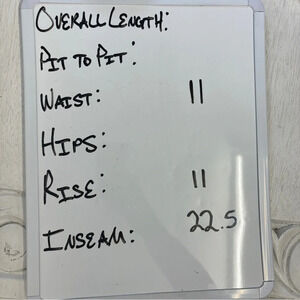 OVERALL LENGTH:
PIT TO PIT:
WAIST: 11
HIPS:
RISE: 11
INSEAM: 22.5